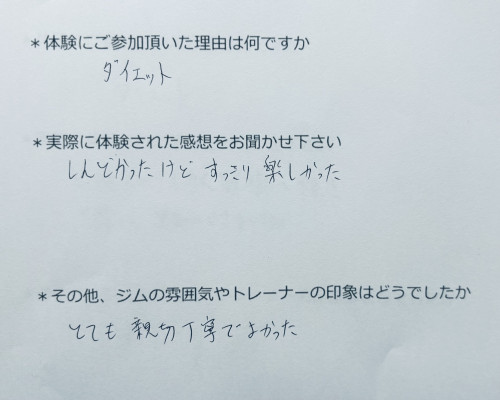 ＊体験にご参加頂いた理由は何ですか
ダイエット
＊実際に体験された感想をお聞かせ下さい
しんどかったけど すっきり 楽しかった
＊その他、ジムの雰囲気やトレーナーの印象はどうでしたか
とても 親切 丁寧でよかった